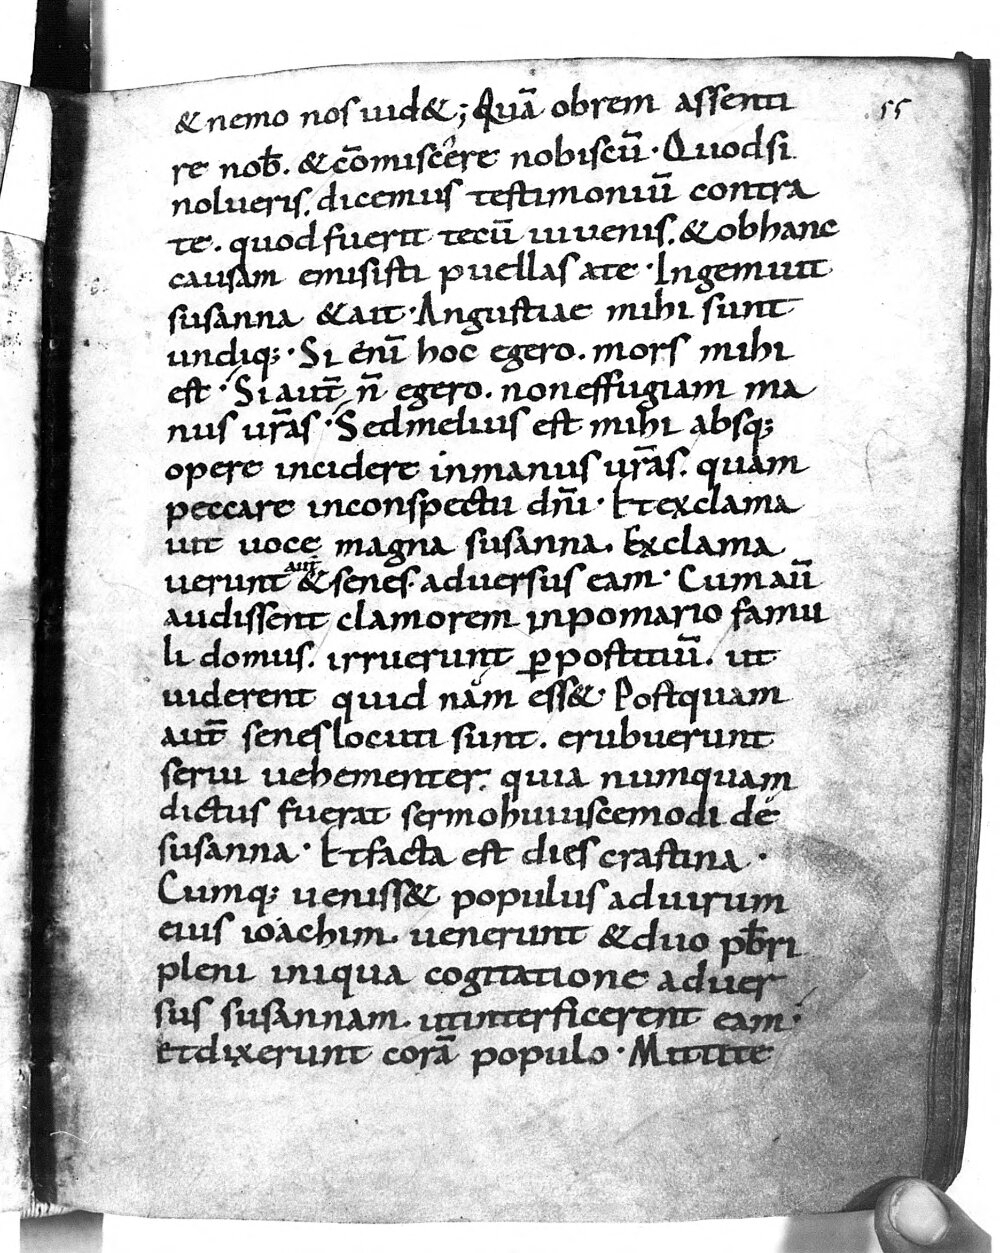 55
& nemo nos uid&; Quā obrem assenti
re nob̄. & cōmiscere nobiscū· Quodsi
nolueris. dicemus testimoniū contra
te. quod fuerit tecū iuuenis. & obhanc
causam emisisti puellas a te· Ingemuit
susanna & ait· Angustiae mihi sunt
undiq;· Si enī hoc egero. mors mihi
est· Si aut̄ n̄ egero. non effugiam ma
nus ur̄as· Sed melius est mihi absq;
opere incidere in manus ur̄as. quam
peccare in conspectu dn̄i· Et exclama
uit uoce magna susanna. Exclama
uerunt aut̄ & senes aduersus eam· Cum aū
audissent clamorem in pomario famu
li domus. irruerunt ꝑ posticiū. ut
uiderent quid nam ess&· Postquam
aut̄ senes locuti sunt. erubuerunt
serui uehementer. quia numquam
dictus fuerat sermo huiuscemodi de
susanna· Et facta est dies crastina·
Cumq; ueniss& populus ad uirum
eius ioachim. uenerunt & duo pb̄ri
pleni iniqua cogitatione aduer
sus susannam. ut interficerent eam·
Et dixerunt corā populo· Mittite